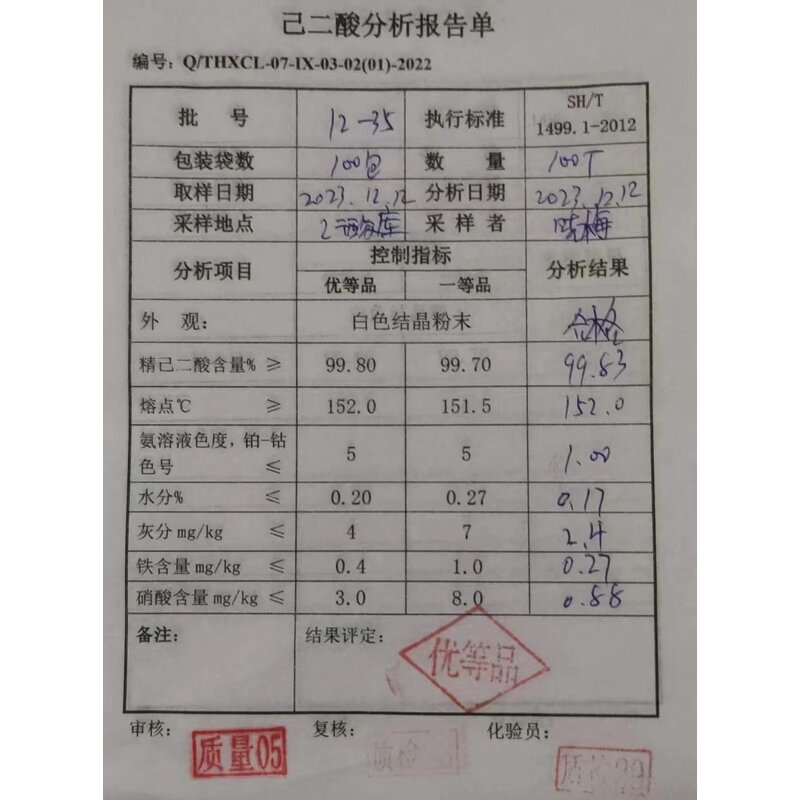 己二酸分析报告单
编号：Q/THXCL-07-IX-03-02(01)-2022
批 号 12-35 执行标准 SH/T 1499.1-2012
包装袋数 100包 数 量 100T
取样日期 2023.12.12 分析日期 2023.12.12
采样地点 2 库 采 样 者 梅
分析项目 控制指标 分析结果
优等品 一等品
外 观： 白色结晶粉末 合格
精己二酸含量% ≥ 99.80 99.70 99.83
熔点℃ ≥ 152.0 151.5 152.0
氨溶液色度，铂-钴
色号 ≤ 5 5 1.00
水分% ≤ 0.20 0.27 0.17
灰分 mg/kg ≤ 4 7 2.4
铁含量 mg/kg ≤ 0.4 1.0 0.27
硝酸含量 mg/kg ≤ 3.0 8.0 0.88
备注： 结果评定：
优等品
审核： 复核： 化验员：
质量05 质检 质检29